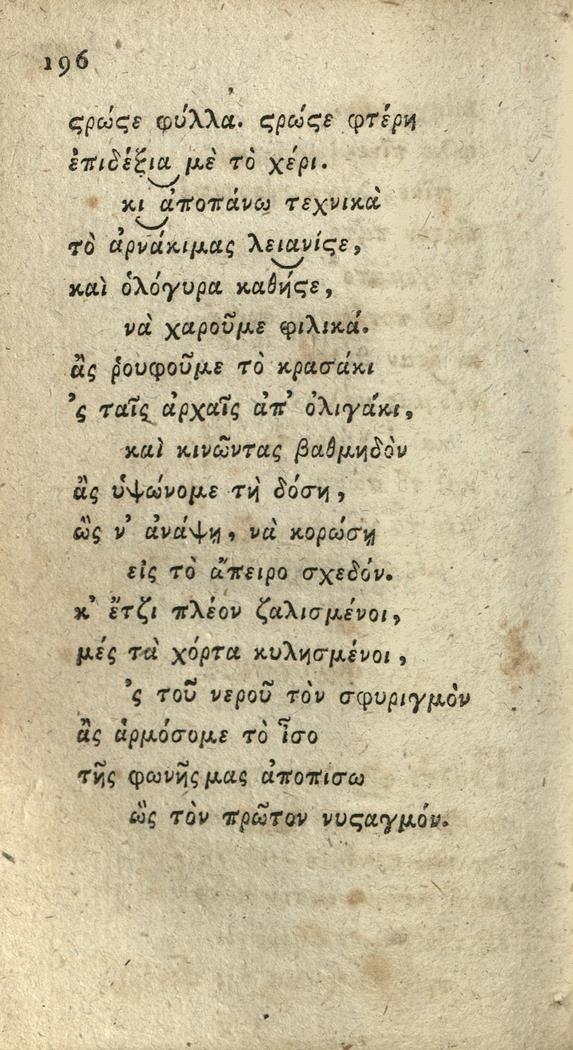 196
ϛρώϛε φύλλα. ϛρώϛε φτέρη
ἐπιδέξια μὲ τὸ χέρι.
κι ἀποπάνω τεχνικὰ
τὸ ἀρνάκιμας λειανίϛε,
καὶ ὁλόγυρα καθήϛε,
νὰ χαροῦμε φιλικά.
ἂς ῥουφοῦμε τὸ κρασάκι
'ς ταῖς ἀρχαῖς ἀπ' ὀλιγάκι,
καὶ κινῶντας βαθμηδὸν
ἂς ὑψώνομε τὴ δόση,
ὣς ν' ἀνάψῃ, νὰ κορώσῃ
εἰς τὸ ἄπειρο σχεδόν.
κ' ἔτζι πλέον ζαλισμένοι,
μές τὰ χόρτα κυλησμένοι,
'ς τοῦ νεροῦ τὸν σφυριγμὸν
ἂς ἁρμόσομε τὸ ἶσο
τῆς φωνῆςμας ἀποπισω
ὣς τὸν πρῶτον νυϛαγμόν.